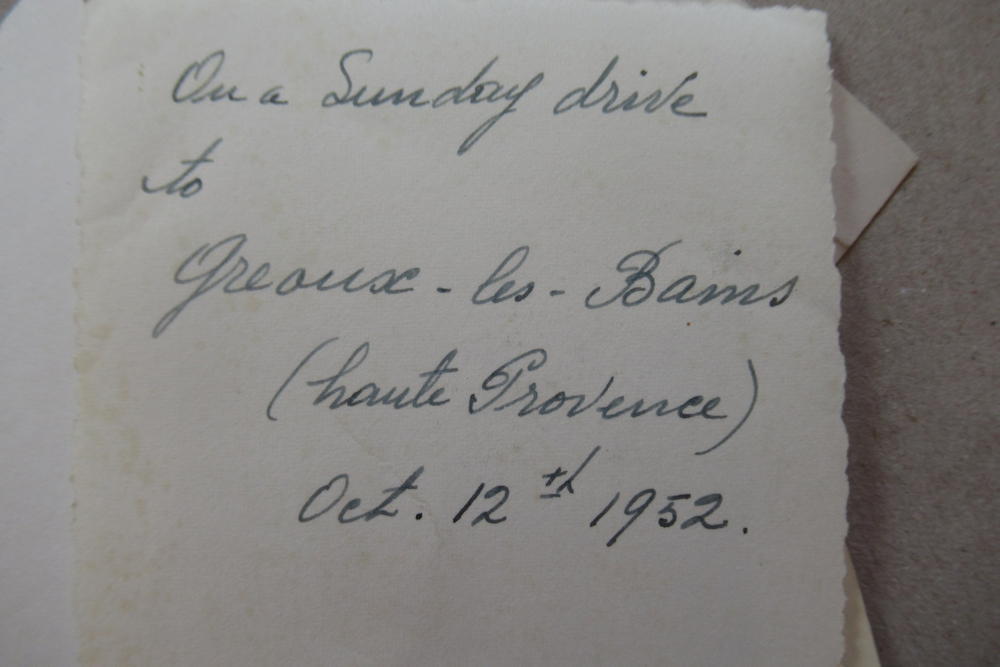 On a Sunday drive
to
Greoux-les-Bains
(haute Provence)
Oct. 12th 1952.